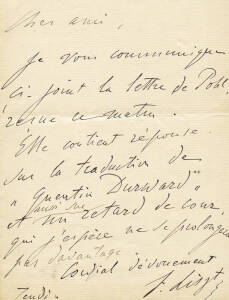 Cher ami,
je vous communique
ci-joint la lettre de Pohl,
reçue ce matin.
Elle contient réponse
sur la traduction de
"Quentin Durward"
aussi sur
un retard de
qui j'espère ne se prolongera
pas davantage
Cordial dévouement
F. Liszt
Jeudi